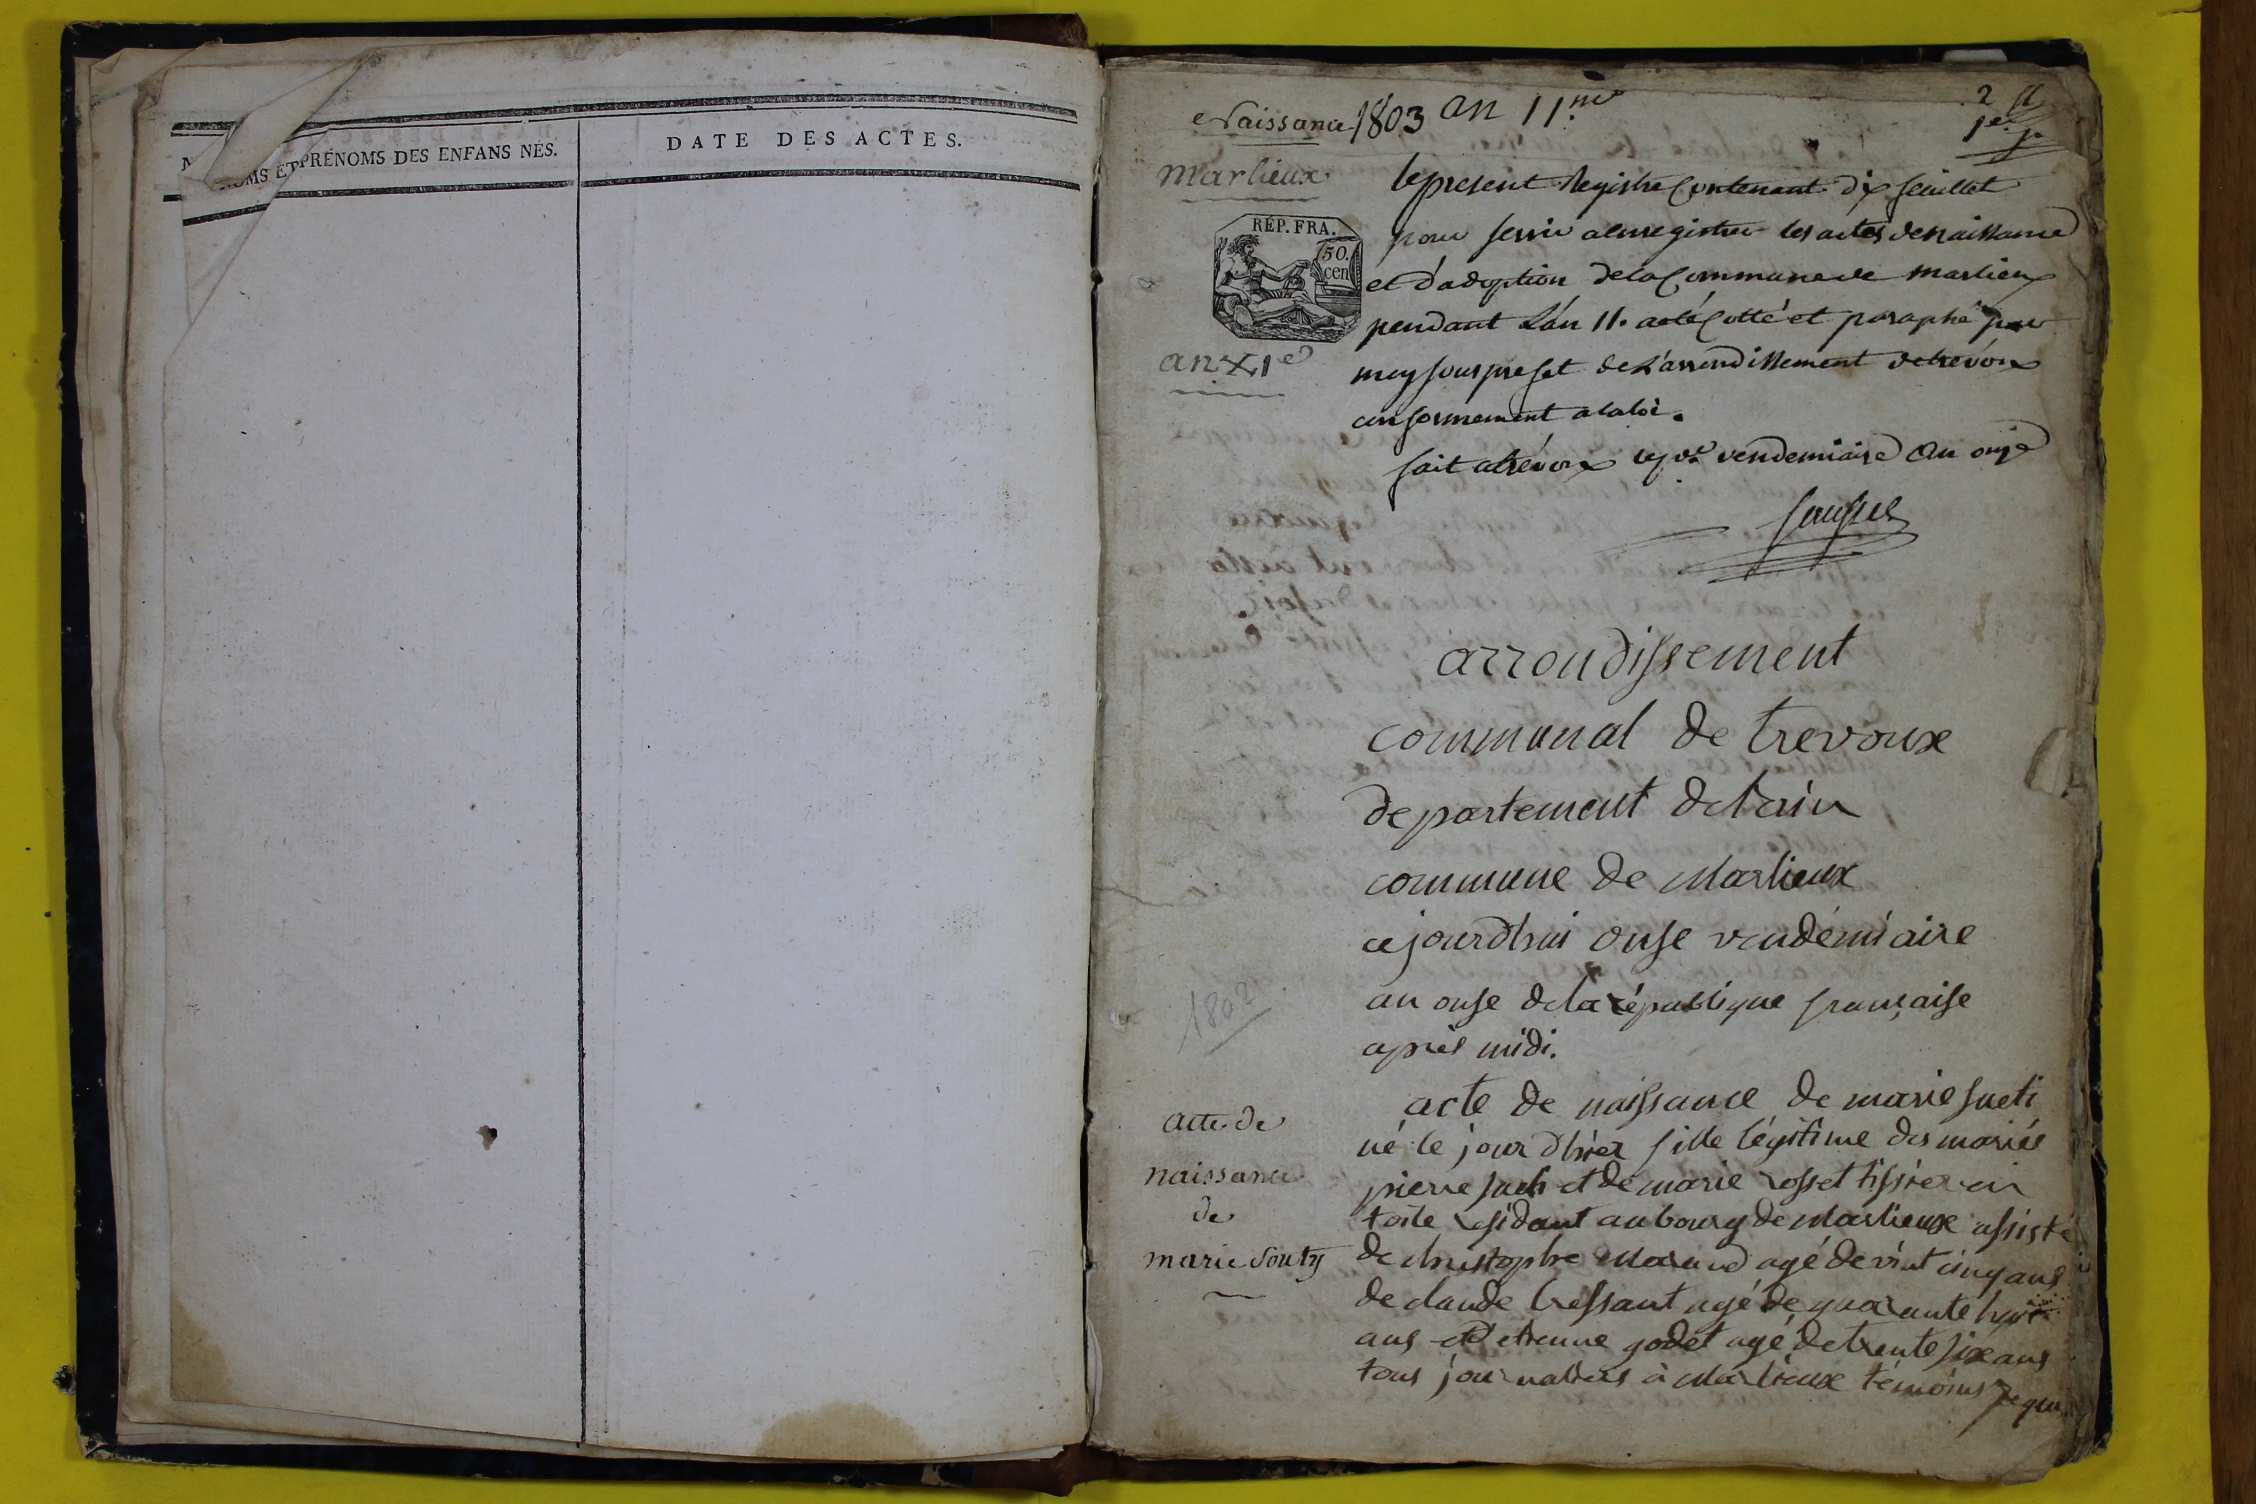 NOMS ET PRÉNOMS DES ENFANS NÉS.
DATE DES ACTES.
Naissance 1803 an 11.me
2 ff
1er
Marlieux
le present Registre Contenant dix feuillet
pour servir a enregistrer les actes de naissance
et d'adoption de la Commune de marlieux
pendant L'an 11. acté Cotté et paraphé par
moy sous prefet de L'arrondissement de trevoux
conformement a la loi.
fait a trévoux ce vendemiaire an onze
RÉP. FRA.
50.
cen
an XIe
arrondissement
communal de trevoux
departement de lain
commune de Marlieux
cejourdhui onse vendémiaire
an onse de la république française
après midi.
1802
acte de naissance de marie sueti
né le jour dhier fille légitime des mariés
pierre sueti et de marie rosset tissier en
toile residant au bourg de Marlieux assisté
de christophe Maraud agé de vint cinq ans
de claude tressant agé de quarante huit
ans et d'etienne godet agé de trente six ans
tous journaliers à Marlieux témoins requi
acte de
naissance
de
marie Souty